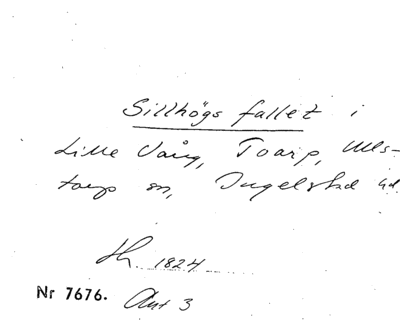 Sillhögs fallet i
Lille Vång, Toarp, Ulls-
torps sn, Ingelstad hd
Hk 1824
Nr 7676. Akt 3